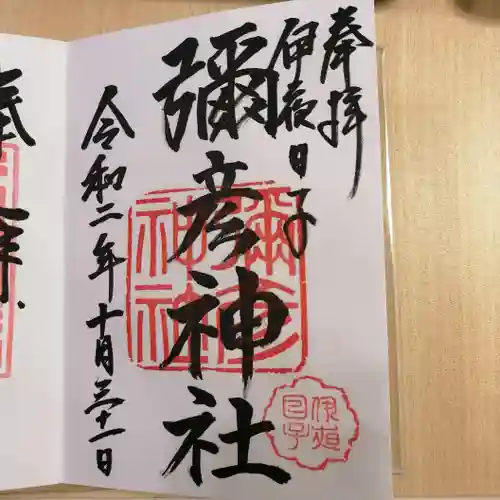 奉拝
伊夜日子
彌彦神社
令和二年十月三十一日
彌彦神社
伊夜日子
奉拝